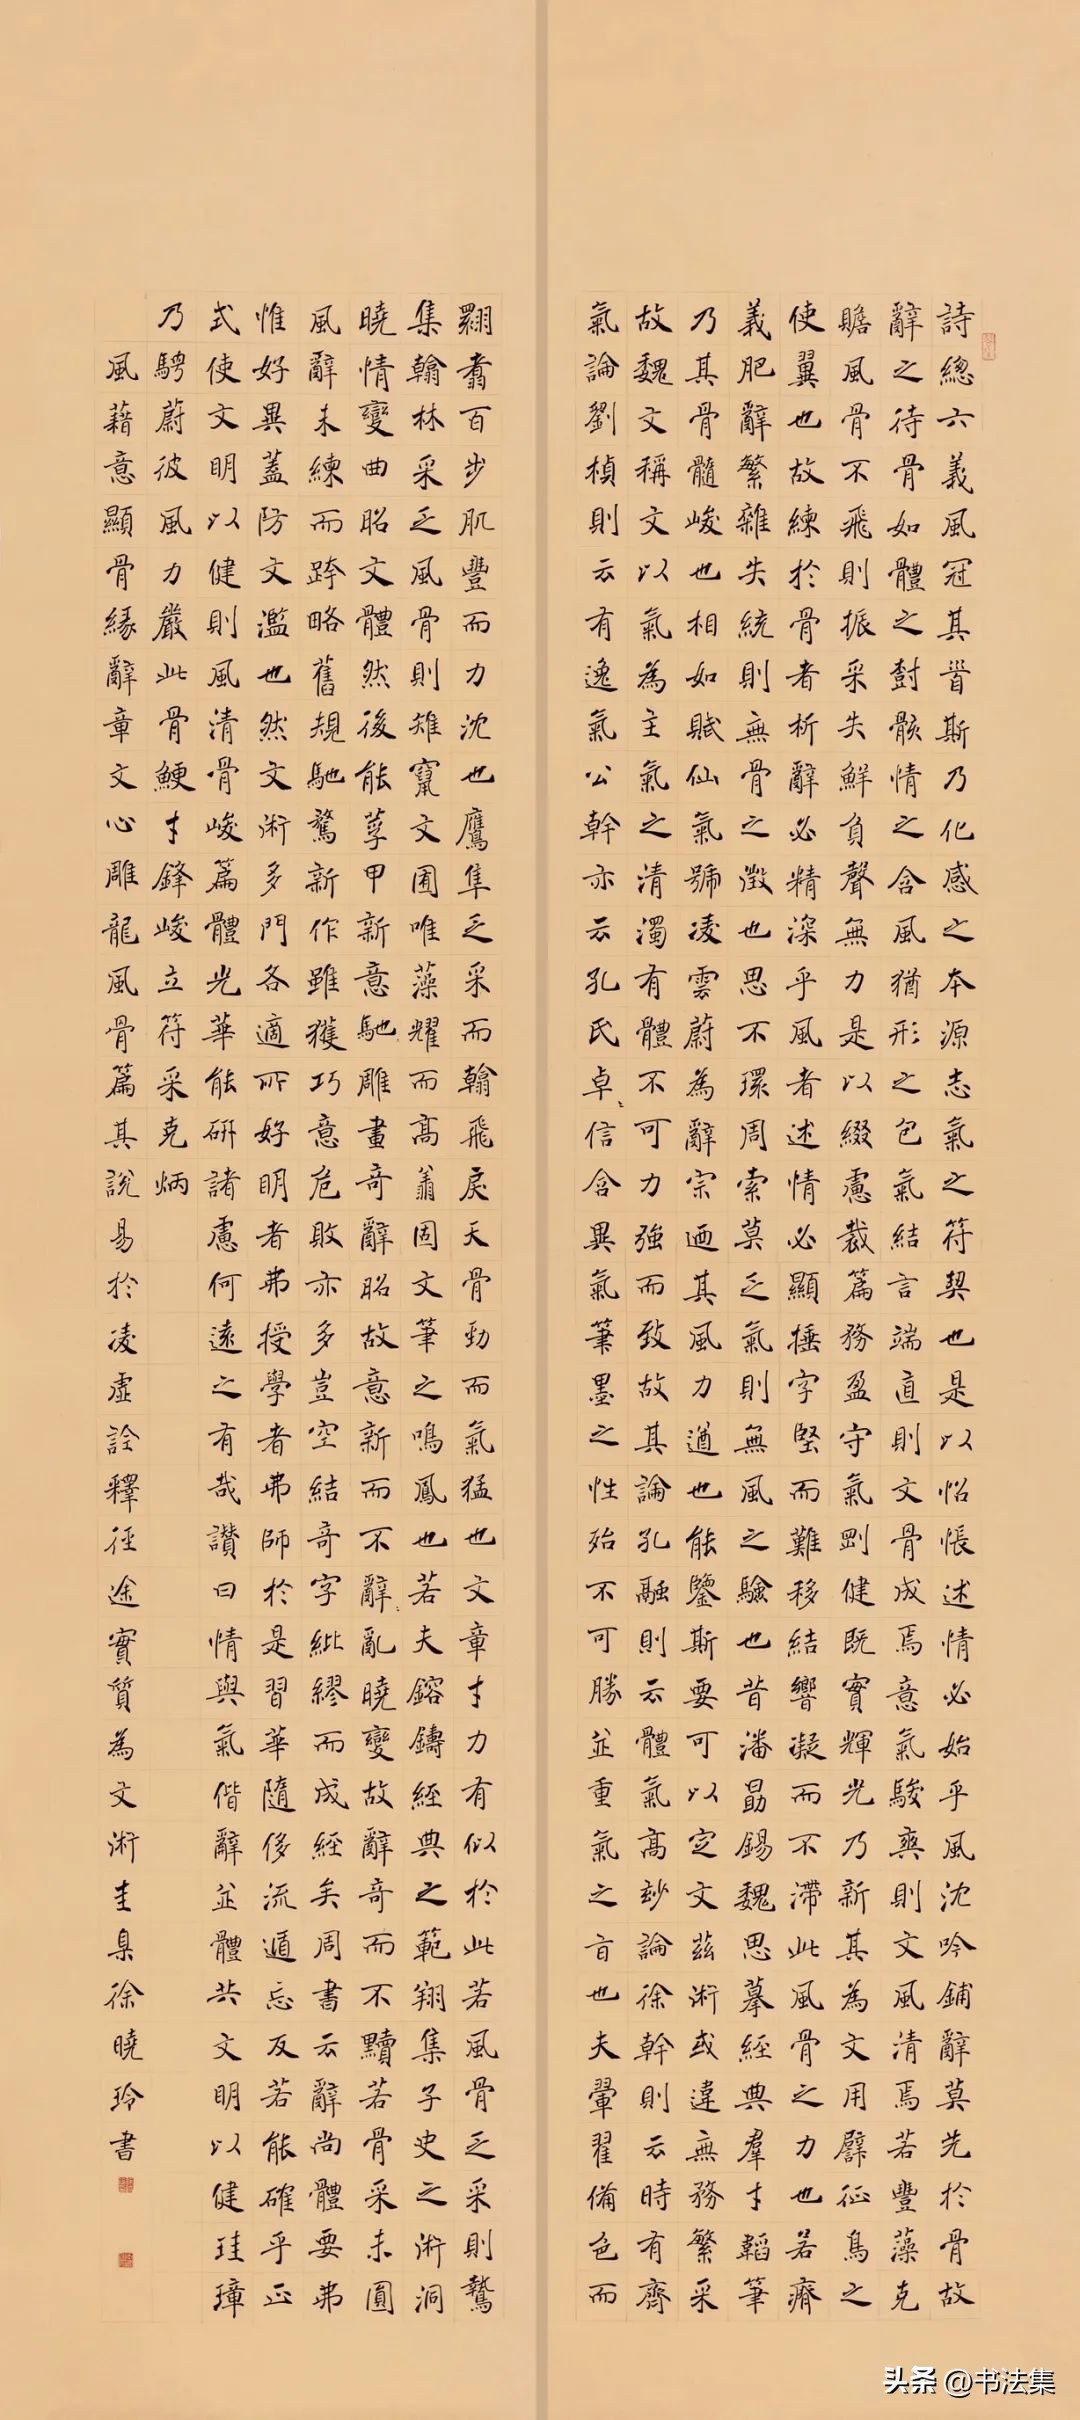 詩總六義風冠其首斯乃化感之本源志氣之符契也是以怊悵述情必始乎風沈吟鋪辭莫先於骨故
辭之待骨如體之樹骸情之含風猶形之包氣結言端直則文骨成焉意氣駿爽則文風清焉若豐藻克
贍風骨不飛則振采失鮮負聲無力是以綴慮裁篇務盈守氣剛健既實輝光乃新其為文用譬征鳥之
使翼也故練於骨者析辭必精深乎風者述情必顯捶字堅而難移結響凝而不滯此風骨之力也若瘠
義肥辭繁雜失統則無骨之徵也思不環周索莫乏氣則無風之驗也昔潘勗錫魏思摹經典羣才韜筆
乃其骨髓峻也相如賦仙氣號凌雲蔚為辭宗迺其風力遒也能鑒斯要可以定文茲術或違無務繁采
故魏文稱文以氣為主氣之清濁有體不可力強而致故其論孔融則云體氣高妙論徐幹則云時有齊
氣論劉楨則云有逸氣公幹亦云孔氏卓〻信含異氣筆墨之性殆不可勝並重氣之旨也夫翬翟備色而
翾翥百步肌豐而力沈也鷹隼乏采而翰飛戾天骨勁而氣猛也文章才力有似於此若風骨乏采則鷙
集翰林采乏風骨則雉竄文囿唯藻耀而高翔固文筆之鳴鳳也若夫鎔鑄經典之範翔集子史之術洞
曉情變曲昭文體然後能莩甲新意馳雕畫奇辭昭故意新而不辭亂曉變故辭奇而不黷若骨采未圓
風辭未練而跨略舊規馳騖新作雖獲巧意危敗亦多豈空結奇字紕繆而成經矣周書云辭尚體要弗
惟好異蓋防文濫也然文術多門各適所好明者弗授學者弗師於是習華隨侈流遁忘反若能確乎正
式使文明以健則風清骨峻篇體光華能研諸慮何遠之有哉讚曰情與氣偕辭並體共文明以健珪璋
乃騁蔚彼風力嚴此骨鯁才鋒峻立符采克炳
風藉意顯骨緣辭章文心雕龍風骨篇其說易於凌虛詮釋徑途實質為文術圭臬徐曉玲書
头条 @书法集